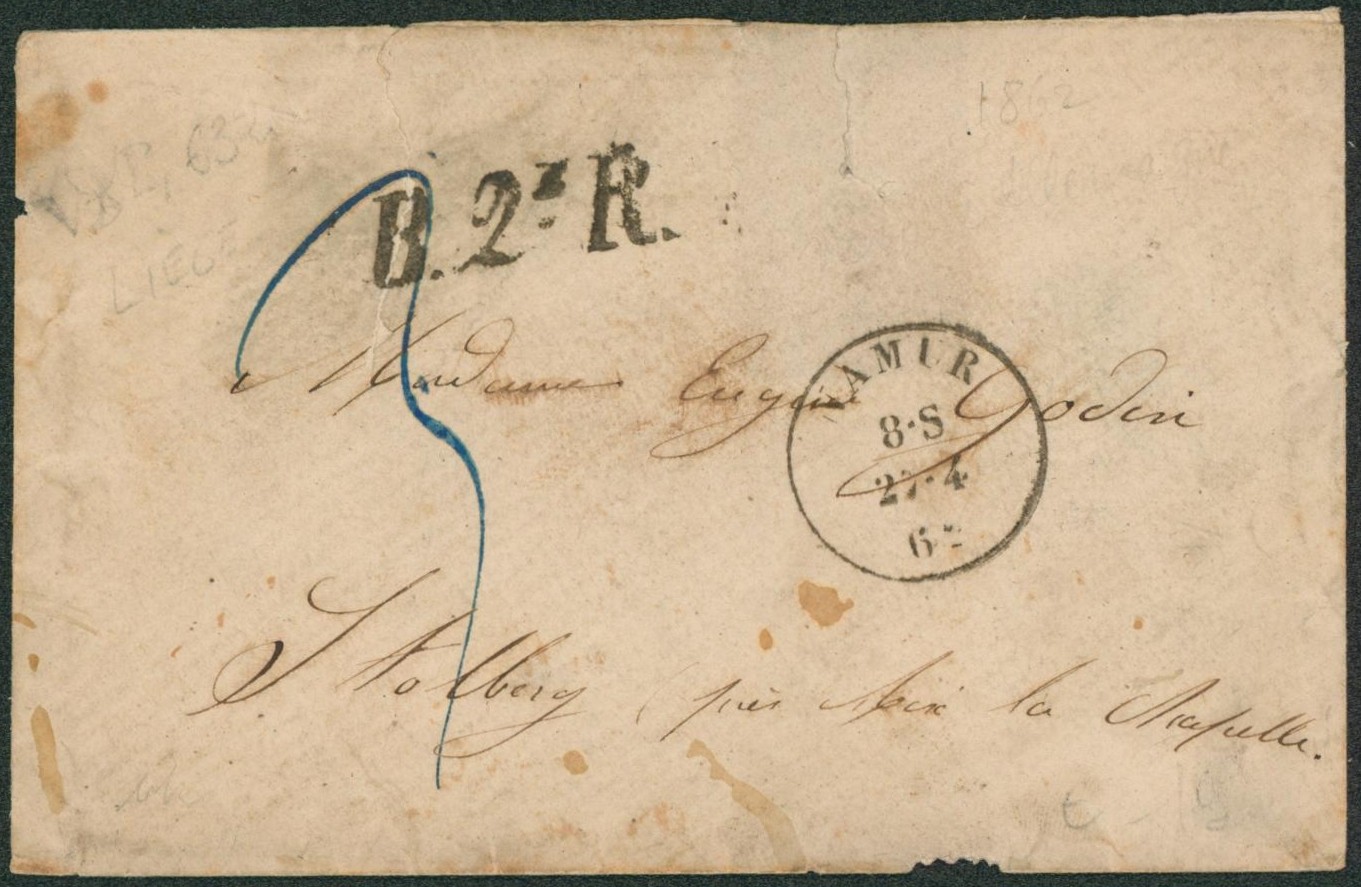 1862
LIEGE
B. 2ᵉ R.
3
Madame Eugène Godin
NAMUR
8·S
27·4
62
Stolberg (près Aix la Chapelle.